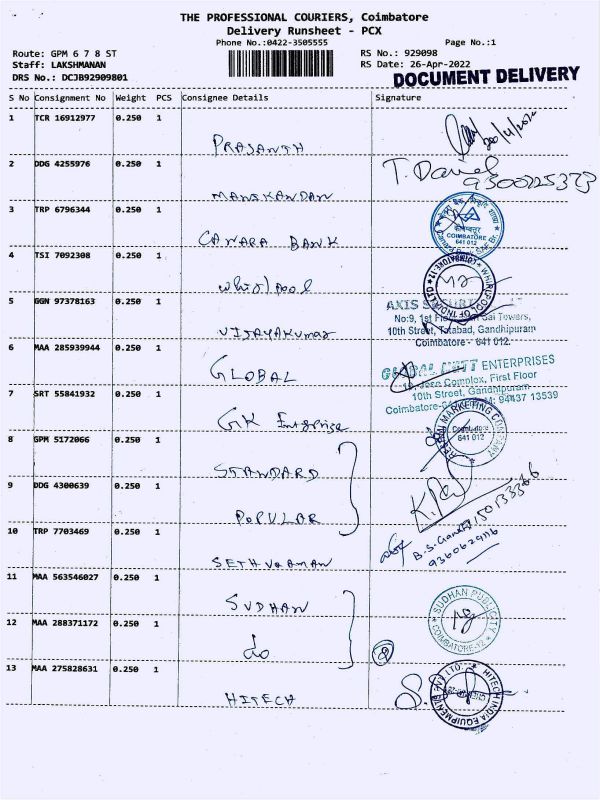 THE PROFESSIONAL COURIERS, Coimbatore
Delivery Runsheet - PCX
Phone No.:0422-3505555
Page No.:1
Route: GPM 6 7 8 ST
RS No.: 929098
Staff: LAKSHMANAN
RS Date: 26-Apr-2022
DRS No.: DCJB92909801
DOCUMENT DELIVERY
S No Consignment No Weight PCS Consignee Details Signature
1 TCR 16912977 0.250 1
PRASANTH
2 DDG 4255976 0.250 1
T. Daniel
MANIKANDAN
3 TRP 6796344 0.250 1
CANARA BANK
COIMBATORE
641 012
4 TSI 7092308 0.250 1
Whirlpool
WHIRLPOOL OF INDIA LTD COIMBATORE-12
5 GGN 97378163 0.250 1
AXIS
No:9, 1st Sai Towers,
10th Street, Tatabad, Gandhipuram
VIJAYAKumar
Coimbatore - 641 012.
6 MAA 285939944 0.250 1
ENTERPRISES
Complex, First Floor
GLOBAL
10th Street, Gandhipuram
7 SRT 55841932 0.250 1
Coimbatore M: 94437 13539
GK Enterprise
MARKETING COMPANY
Coimbatore
641 012
8 GPM 5172066 0.250 1
STANDARD
9 DDG 4300639 0.250 1
POPULAR
10 TRP 7703469 0.250 1
9360629116
SETHURAMAN
11 MAA 563546027 0.250 1
SUDHAN
SUDHAN PUBLICITY
COIMBATORE-12
12 MAA 288371172 0.250 1
do
2
13 MAA 275828631 0.250 1
HITECH
HITECH INDIA EQUIPMENTS PVT LTD.